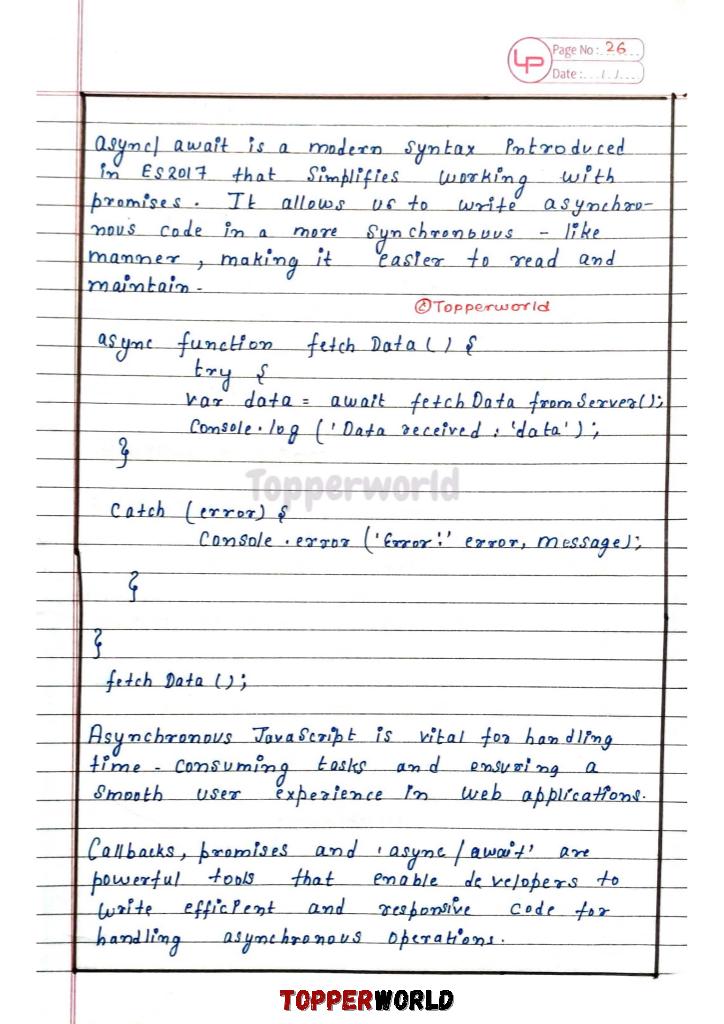 LP
Page No : 26
Date : ... / . / ....
async/ await is a modern syntax introduced
in ES2017 that simplifies working with
promises. It allows us to write asynchro-
nous code in a more synchronous - like
manner, making it easier to read and
maintain.
©Topperworld
async function fetch Data () {
try {
var data = await fetchData fromServer();
Console.log ('Data received : 'data');
}
Topperworld
Catch (error) {
Console.error ('Error:' error, message);
}
}
fetch Data ();
Asynchronous JavaScript is vital for handling
time - consuming tasks and ensuring a
smooth user experience in web applications.
Callbacks, promises and 'async/await' are
powerful tools that enable developers to
write efficient and responsive code for
handling asynchronous operations.
TOPPERWORLD